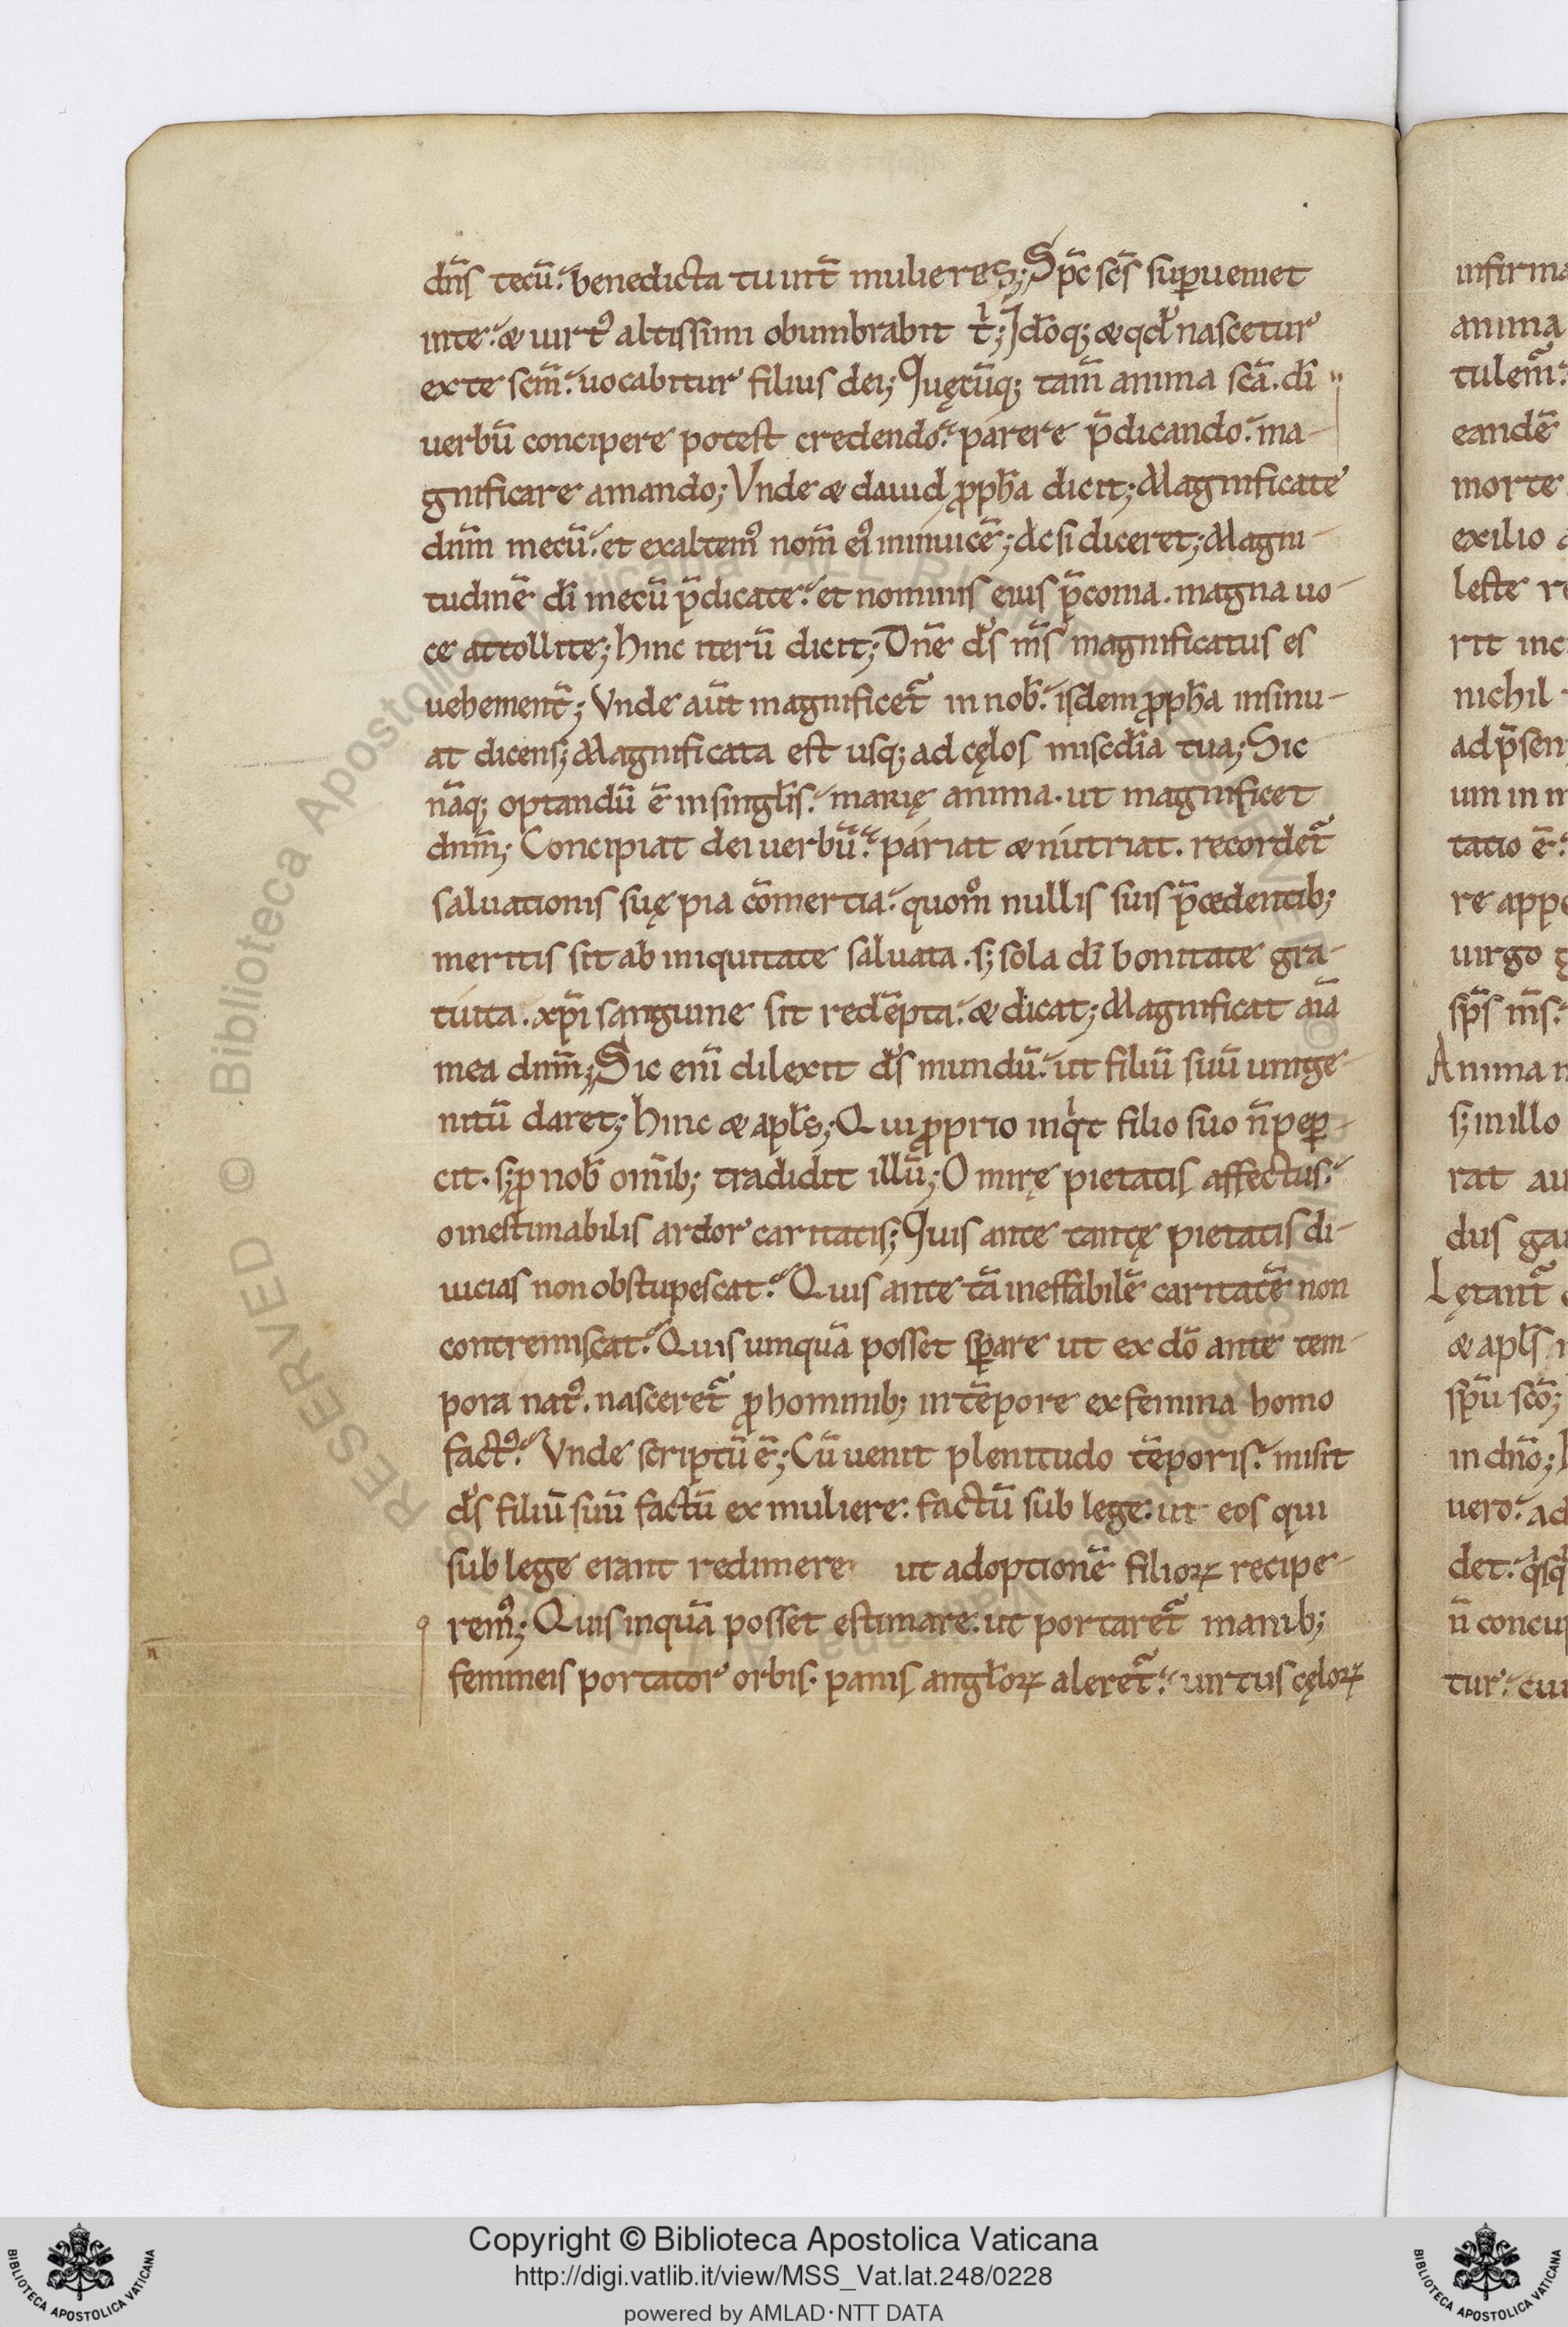 dn̄s tecū. benedicta tu int̄ mulieres; Sp̄c sc̄s suꝑueniet
inte. & uirt᾽ altissimi obumbrabit t̍; Idōq; & qđ nascetur
ex te scm̄. uocabitur filius dei; Quęcūq; tam̄ anima scā. dī
uerbū concipere potest credendo. parere p̄dicando. ma-
gnificare amando; Vnde & dauid ꝓph̄a dicit; Magnificate
dnm̄ mecū. et exaltem᾽ nom̄ ei᾽ inīnuicē; Ac si diceret; Magni-
tudinē dī mecū p̄dicate. et nominis eius p̄conia. magna uo-
ce attollite; hinc iterū dicit; Dn̄e d̄s m̄s magnificatus es
uehement̄; Vnde aūt magnificet᷑ in nob̄. isdem ꝓph̄a insinu-
at dicens; Magnificata est usq; ad cęlos misc̄dia tua; Sic
nāq; optandū ē in singłis. marię anima. ut magnificet
dnm̄; Concipiat dei uerbū. pariat & nutriat. recordet᷑
saluationis suę pia cōmertia. quom̊ nullis suis p̄cedentib;
meritis sit ab iniquitate saluata. s; sola dī bonitate gra-
tuita. xp̄i sanguine sit redēpta. & dicat; Magnificat aīa
mea dnm̄; Sic enī dilexit d̄s mundū. ut filiū suū unige-
nitū daret; hinc & apłs; Qui ꝓprio inq̍t filio suo n̄ peꝑ-
cit. s; ꝓ nob̄ omīb; tradidit illū; O mirę pietatis affectus.
o inestimabilis ardor caritatis; Quis ante tantę pietatis di-
uicias non obstupescat. Quis ante tā ineffabilē caritatē non
contremiscat. Quis umquā posset sꝑare ut ex dō ante tem-
pora nat᾽. nasceret᷑ ꝓ hominib; in tēpore ex femina homo
fact᾽. Vnde scriptū ē; Cū uenit plenitudo tēporis. misit
d̄s filiū suū factū ex muliere. factū sub lege. ut eos qui
sub lege erant redimere ut adoptionē filioꝝ recipe-
rem᾽; Quis inquā posset estimare. ut portaret᷑ manib;
femineis portator orbis. panis angłoꝝ aleret᷑. uirtus cęloꝝ
n̄
infirma
anima
tulem᷑.
eandē
morte
exilio
leste
rit
nichil
ad p̄sen
um in
tatio ē.
re
uirgo
sp̄s m̄s.
Anima
s; in illo
rat
dus
Lętant᷑
& apłs
sp̄u scō;
in dn̄o;
uero.
det.
n̄
tur.
Copyright © Biblioteca Apostolica Vaticana
http://digi.vatlib.it/view/MSS_Vat.lat.248/0228
powered by AMLAD·NTT DATA
BIBLIOTECA APOSTOLICA VATICANA
BIBLIOTECA APOSTOLICA VATICANA